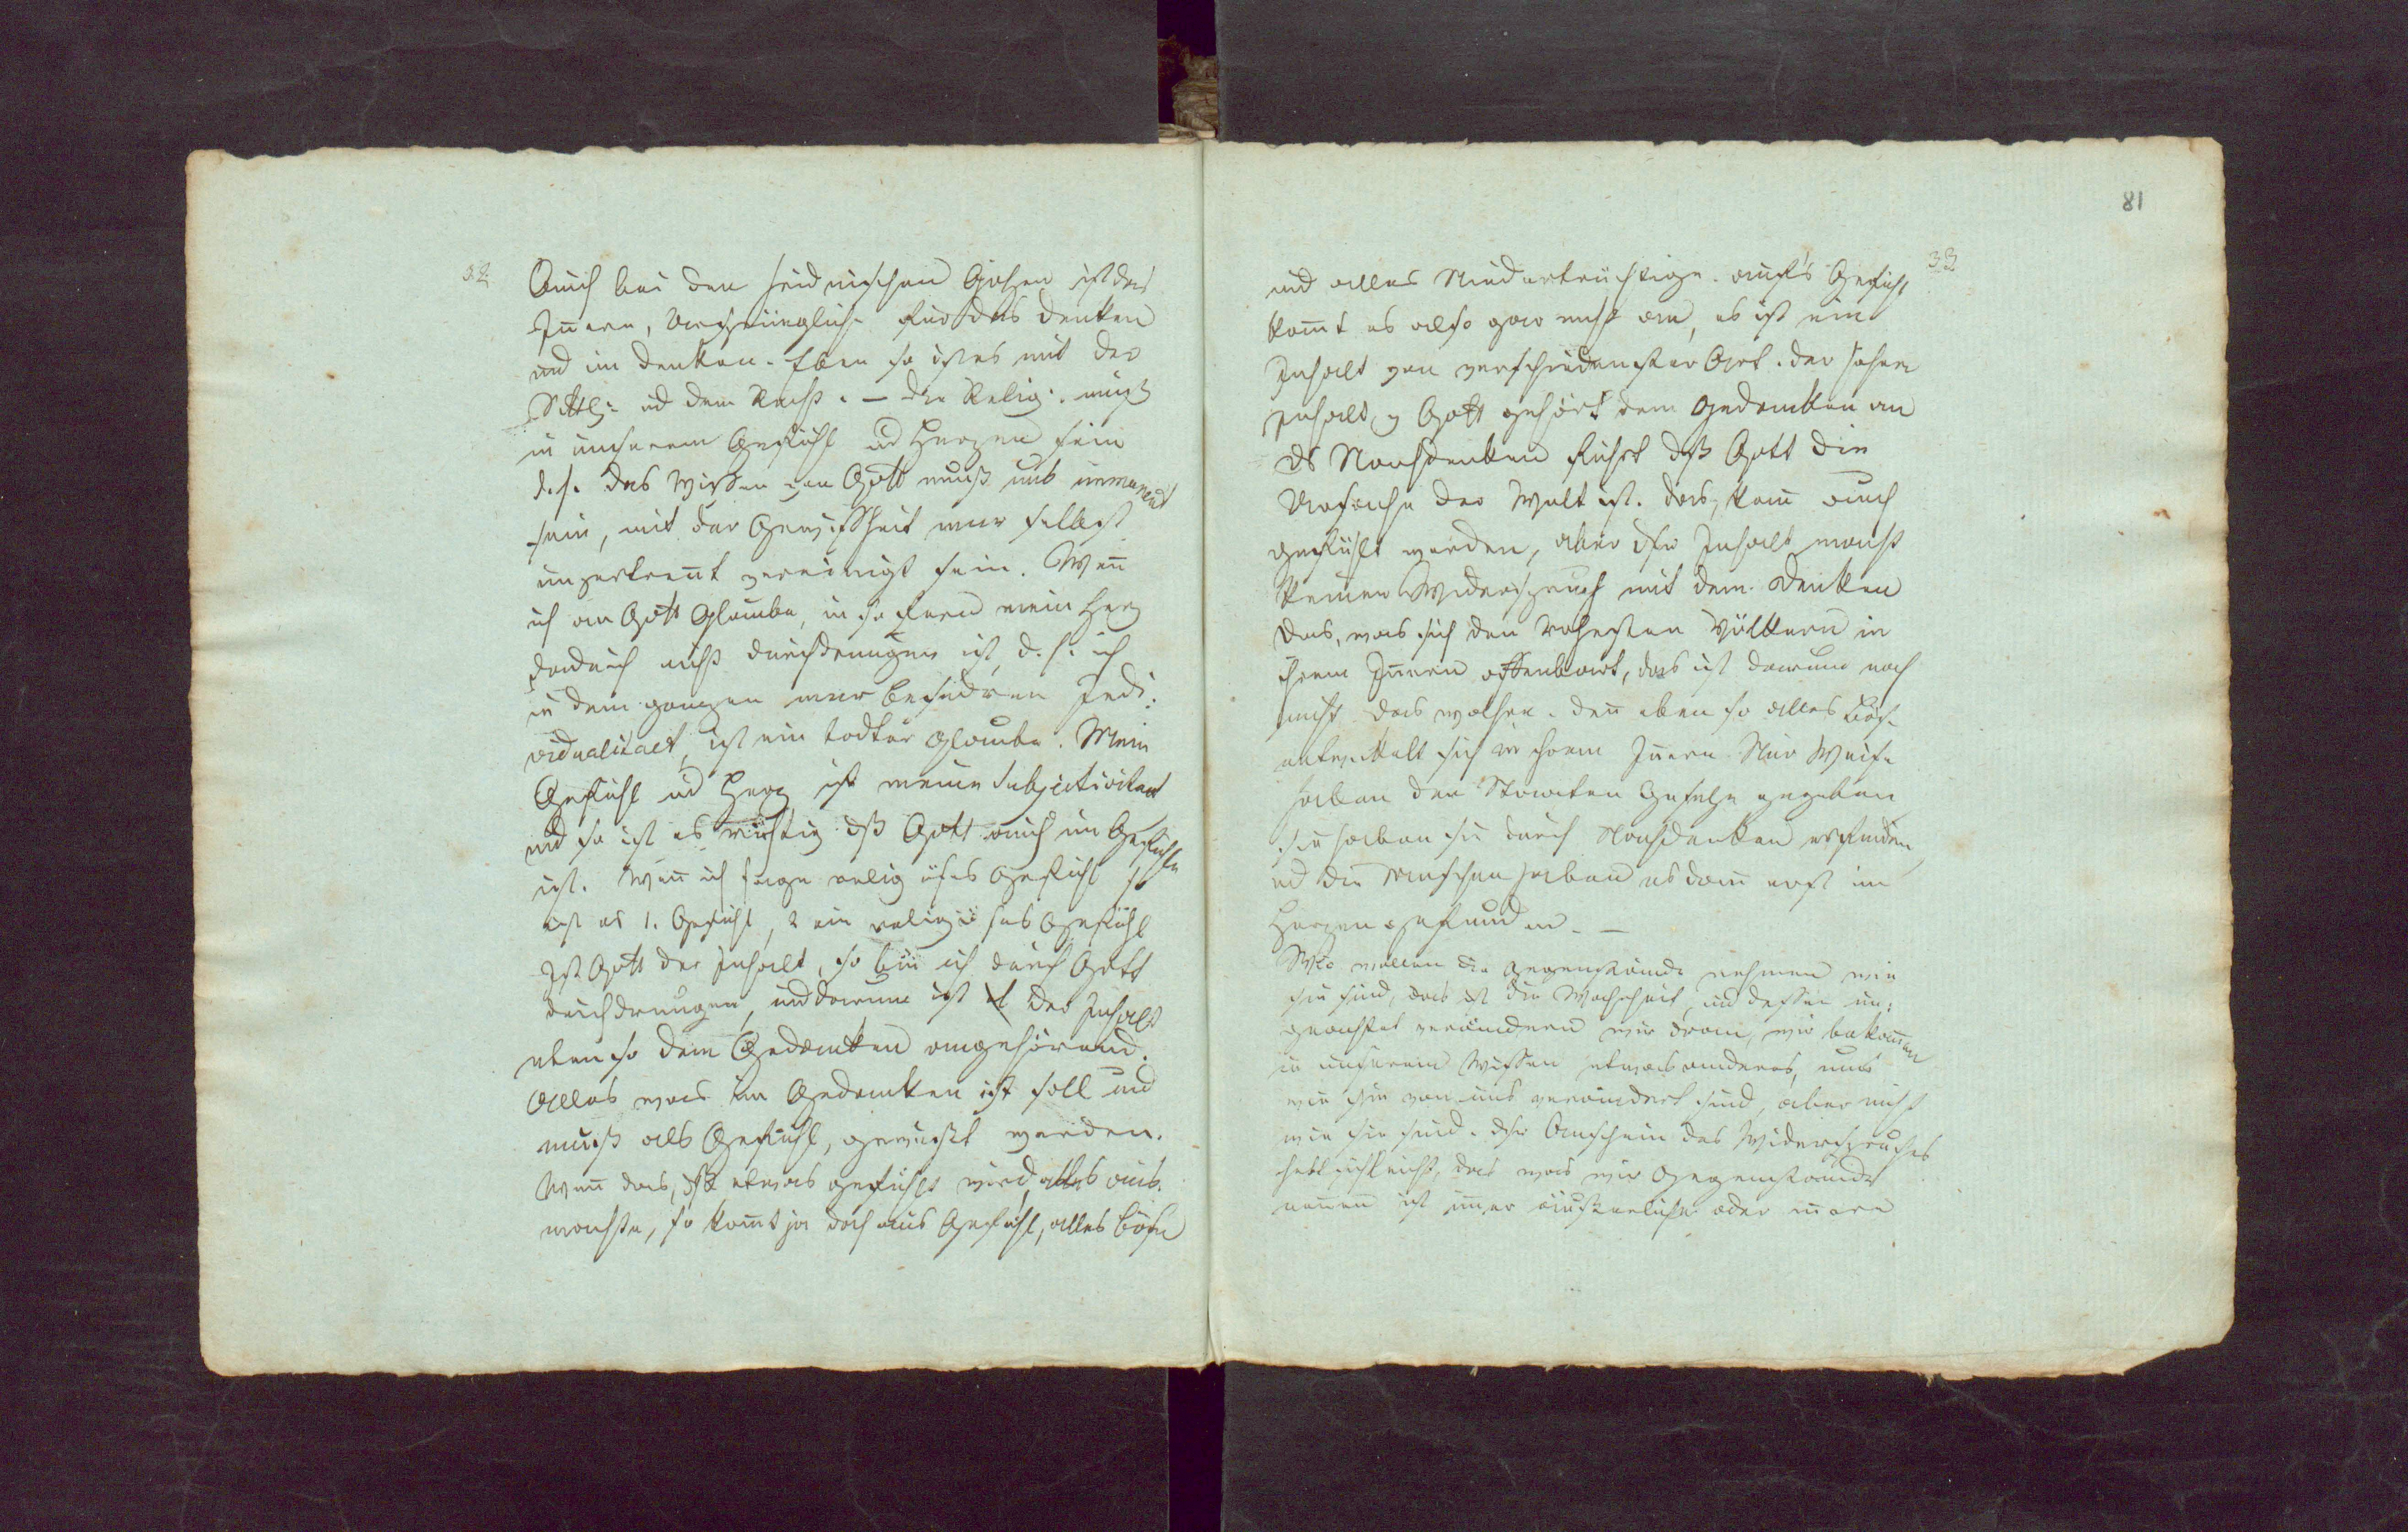 32
Auch bei den heidnischen Götzen ist das
Iñere, Ursprüngliche für das Denken
und im Denken. Eben so ist es mit der
Sittl: ud dem Recht. – Die Relig: muß
in unserem Gefühl ud Herzen sein
d. h. das Wissen von Gott muß uns immanent
sein, mit der Gewißheit mir selbst
unzertreñt vereinigt sein. Weñ
ich an Gott Glaube, in so fern mein Herz
dadurch nicht durchdrungen ist, d. h. ich
in dem ganzen besondren Indi:
vidualitaet, ist ein todter Glaube. Mein
Gefühl ud Herz ist meine Subjectivitaet
und so ist es richtig dß Gott auch im Gefühle
ist. Weñ ich sage religiöses Gefühl so
ist es 1. Gefühl, 2 ein religiöses Gefühl
Ist Gott der Inhalt, so bin ich durch Gott
durchdrungen, und darum ist der Inhalt
eben so dem Gedanken angehörend.
Alles was im Gedanken ist soll und
muß als Gefühl, gewußt werden.
Weñ das, dß etwas gefühlt wird, alles aus
machte, so kom̃t ja doch aus Gefühl, alles böse
81
33
und alles Niederträchtige. auf's Gefühl
kom̃t es also gar nicht an, es ist ein
Inhalt von verschiedenster Art. Der höhere
Inhalt, Gott gehört dem Gedanken an
ds Nachdenken führt dß Gott die
Ursache der Welt ist. das, kañ auch
gefühlt werden, aber dsr Inhalt macht
keinen Widerspruch mit dem Denken
Das, was sich den rohesten Völkern in
ihrem Iñern offenbart, das ist darum noch
nicht das wahre. deñ eben so alles Böse
entwickelt sich in ihrem Iñern Nur Weise
haben den Staaten Gesetze gegeben
sie haben sie durch Nachdenken erfunden
ud die Menschen haben es dañ erst im
Herzen gefunden. –
Wir wollen die Gegenstände nehmen wie
sie sind, das ist die Wahrheit, und dessen un:
geachtet verändern wir dran, wir bekom̃en
in unserem Wissen etwas anderes, nur
wie sie von uns verändert sind, aber nicht
wie sie sind. Dsr Anschein des Widerspruches
hebt sich leicht, das was wir Gegenstände
neñen ist im̃er äußerliche oder iñere